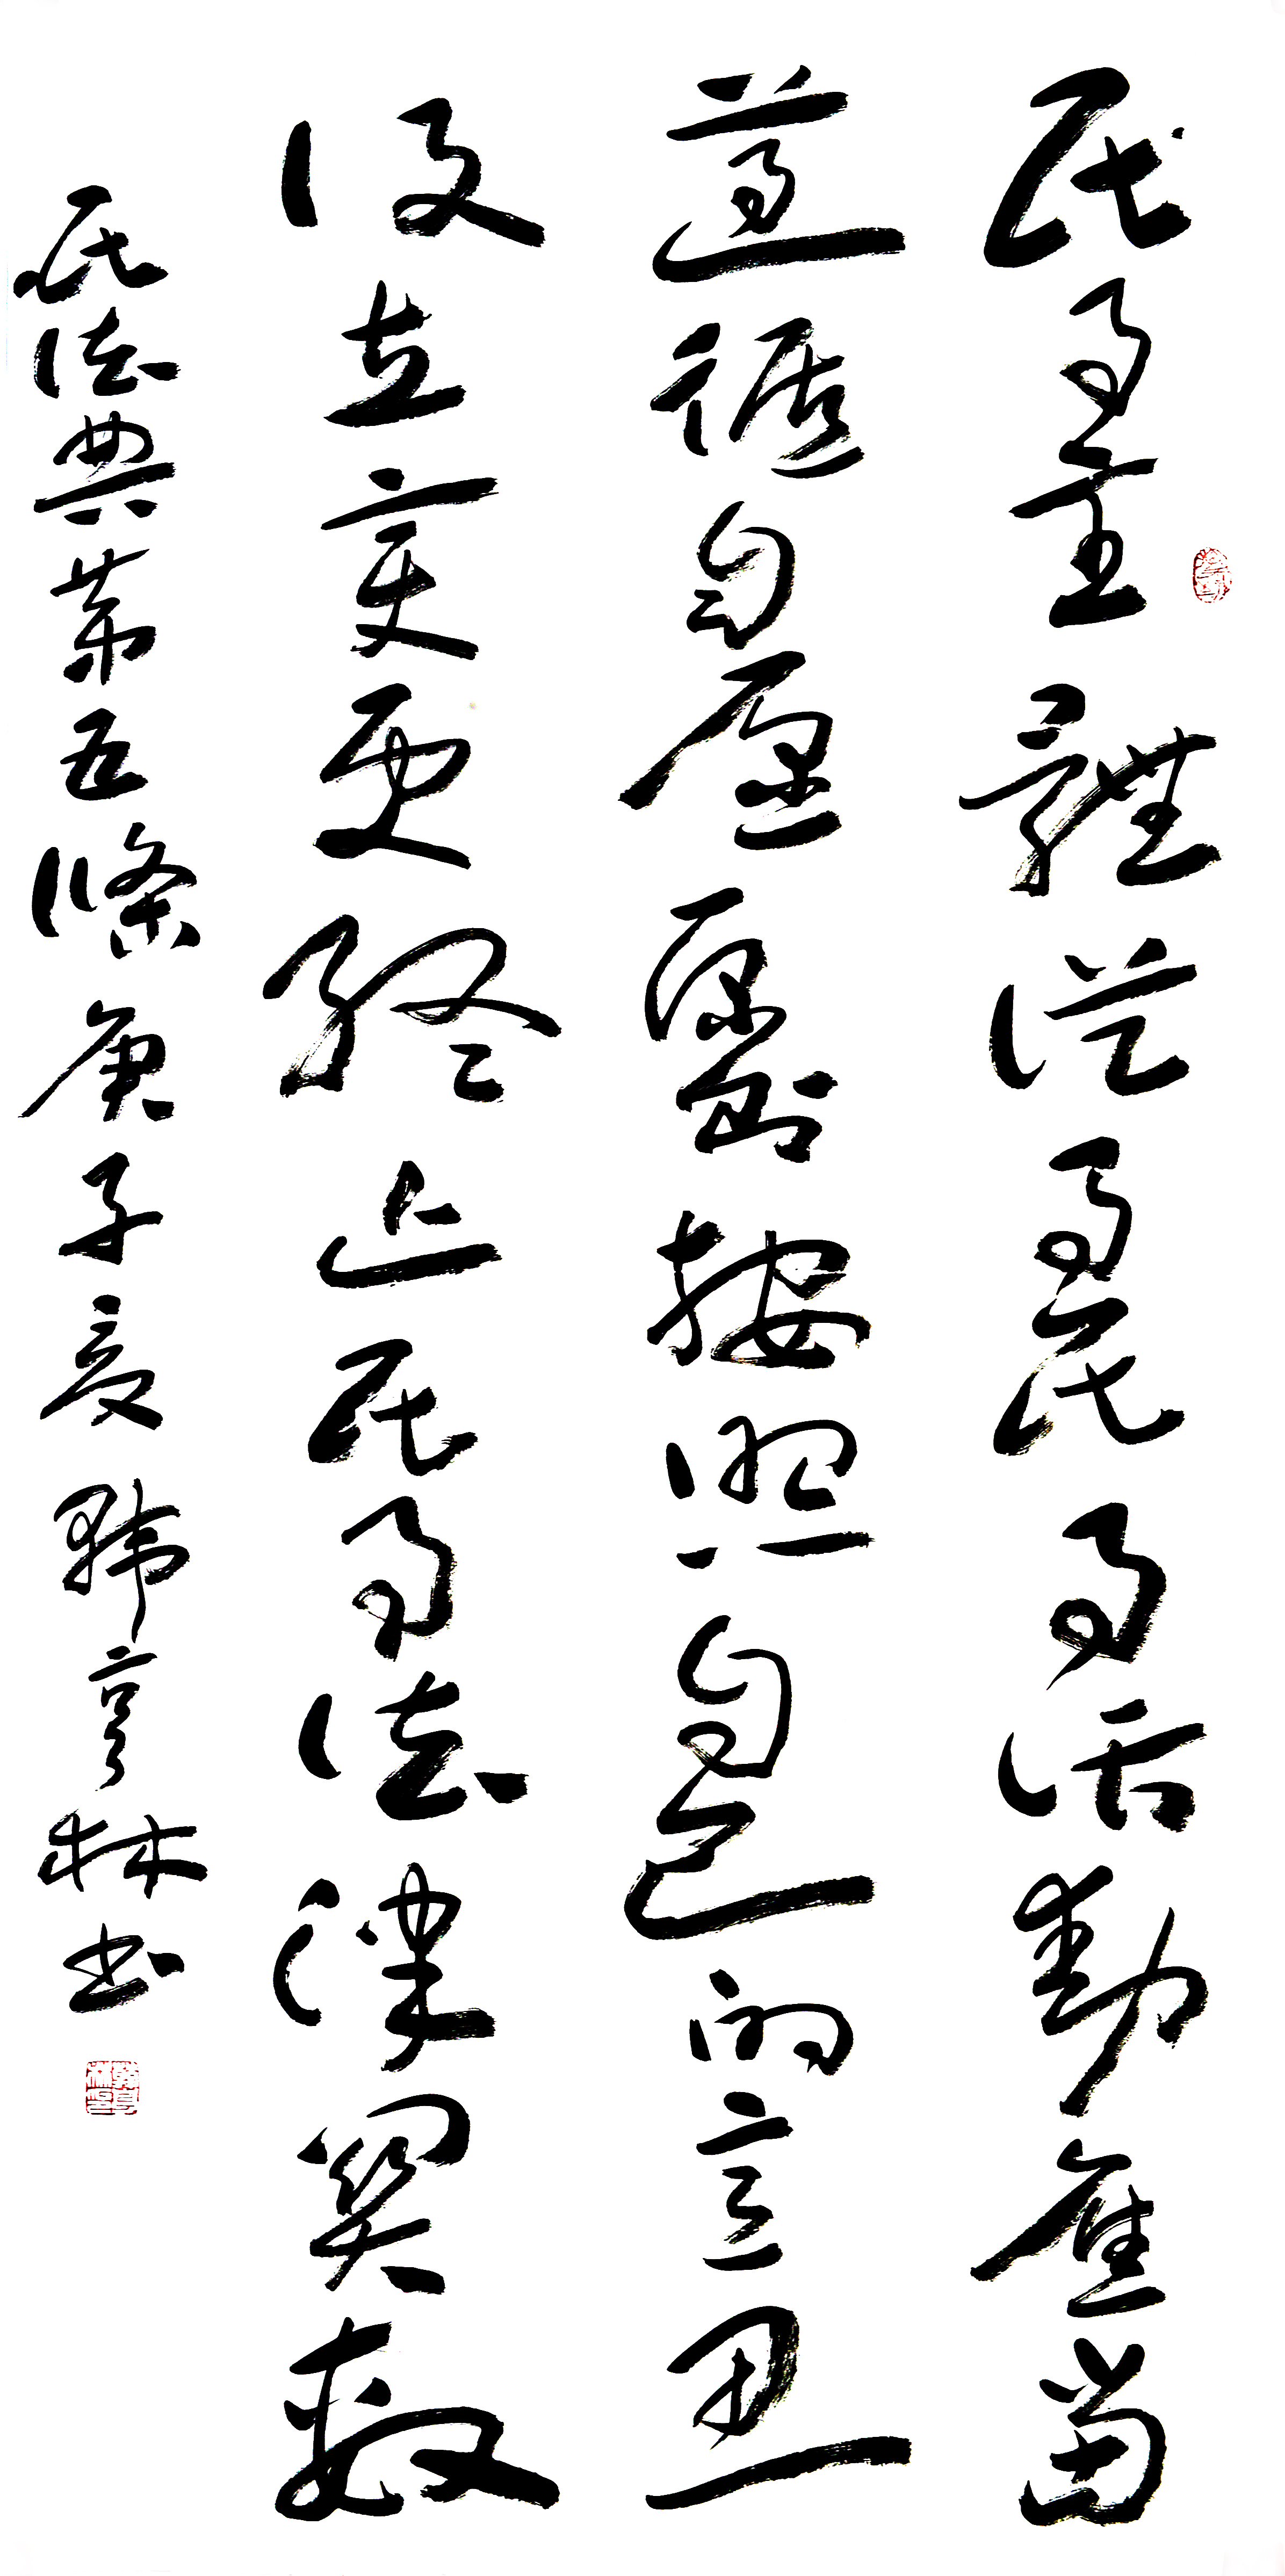 民事主體從事民事活動應當
遵循自愿原則按照自己的意思
設立變更終止民事法律關
民法典第五條庚子夏韓亨林書